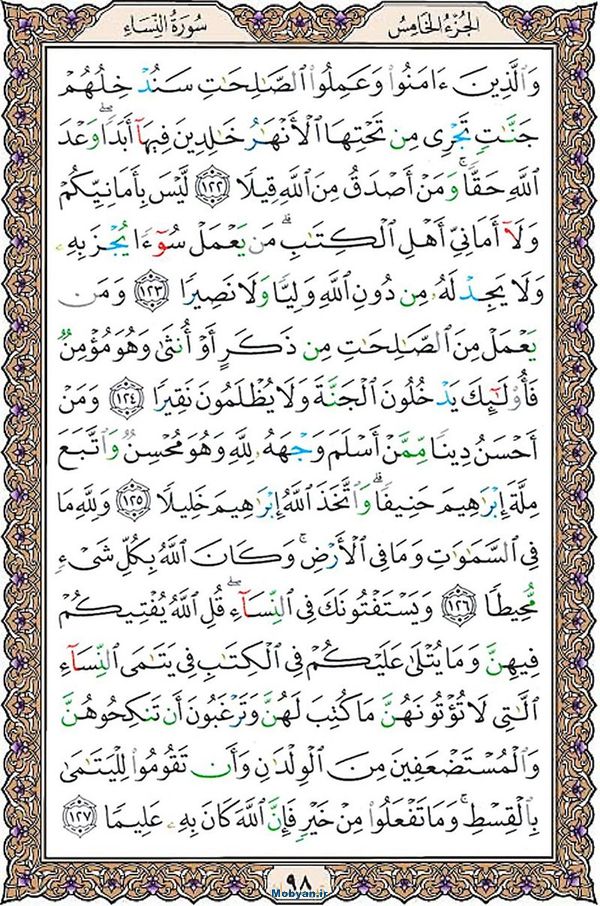 الجُزْءُ الخَامِسُ سُورَةُ النِّسَاءِ
وَالَّذِينَ ءَامَنُوا وَعَمِلُوا الصَّالِحَاتِ سَنُدْخِلُهُمْ
جَنَّاتٍ تَجْرِي مِن تَحْتِهَا الْأَنْهَارُ خَالِدِينَ فِيهَآ أَبَدًا ۖ وَعْدَ
اللَّهِ حَقًّا ۚ وَمَنْ أَصْدَقُ مِنَ اللَّهِ قِيلًا ١٢٢ لَيْسَ بِأَمَانِيِّكُمْ
وَلَآ أَمَانِيِّ أَهْلِ الْكِتَابِ ۗ مَن يَعْمَلْ سُوٓءًا يُجْزَ بِهِۦ
وَلَا يَجِدْ لَهُۥ مِن دُونِ اللَّهِ وَلِيًّا وَلَا نَصِيرًا ١٢٣ وَمَن
يَعْمَلْ مِنَ الصَّالِحَاتِ مِن ذَكَرٍ أَوْ أُنثَىٰ وَهُوَ مُؤْمِنٌ
فَأُولَٰٓئِكَ يَدْخُلُونَ الْجَنَّةَ وَلَا يُظْلَمُونَ نَقِيرًا ١٢٤ وَمَنْ
أَحْسَنُ دِينًا مِّمَّنْ أَسْلَمَ وَجْهَهُۥ لِلَّهِ وَهُوَ مُحْسِنٌ وَاتَّبَعَ
مِلَّةَ إِبْرَاهِيمَ حَنِيفًا ۗ وَاتَّخَذَ اللَّهُ إِبْرَاهِيمَ خَلِيلًا ١٢٥ وَلِلَّهِ مَا
فِي السَّمَاوَاتِ وَمَا فِي الْأَرْضِ ۚ وَكَانَ اللَّهُ بِكُلِّ شَيْءٍ
مُّحِيطًا ١٢٦ وَيَسْتَفْتُونَكَ فِي النِّسَآءِ ۖ قُلِ اللَّهُ يُفْتِيكُمْ
فِيهِنَّ وَمَا يُتْلَىٰ عَلَيْكُمْ فِي الْكِتَابِ فِي يَتَامَى النِّسَآءِ
الَّتِي لَا تُؤْتُونَهُنَّ مَا كُتِبَ لَهُنَّ وَتَرْغَبُونَ أَن تَنكِحُوهُنَّ
وَالْمُسْتَضْعَفِينَ مِنَ الْوِلْدَانِ وَأَن تَقُومُوا لِلْيَتَامَىٰ
بِالْقِسْطِ ۚ وَمَا تَفْعَلُوا مِنْ خَيْرٍ فَإِنَّ اللَّهَ كَانَ بِهِۦ عَلِيمًا ١٢٧
٩٨
Mobyan.ir